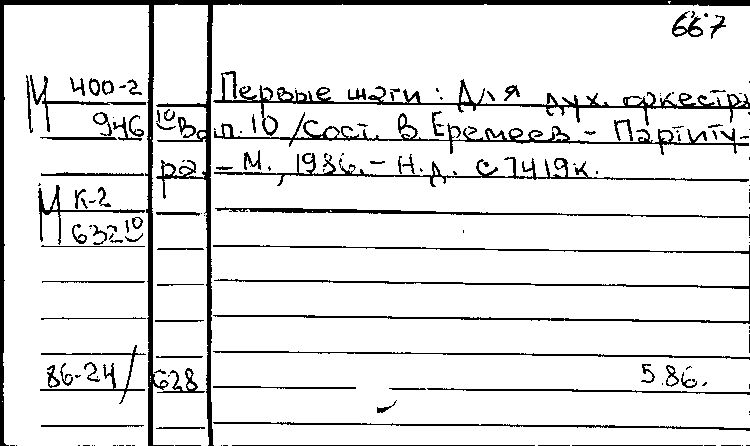 667
М 400-2 Первые шаги : Для дух. оркестра
946 10 Вып. 10 / Сост. В Еремеев - Партиту-
ра. - М., 1986. - Н.д. с 7419к.
М К-2
632 10
86-24/628 5.86.